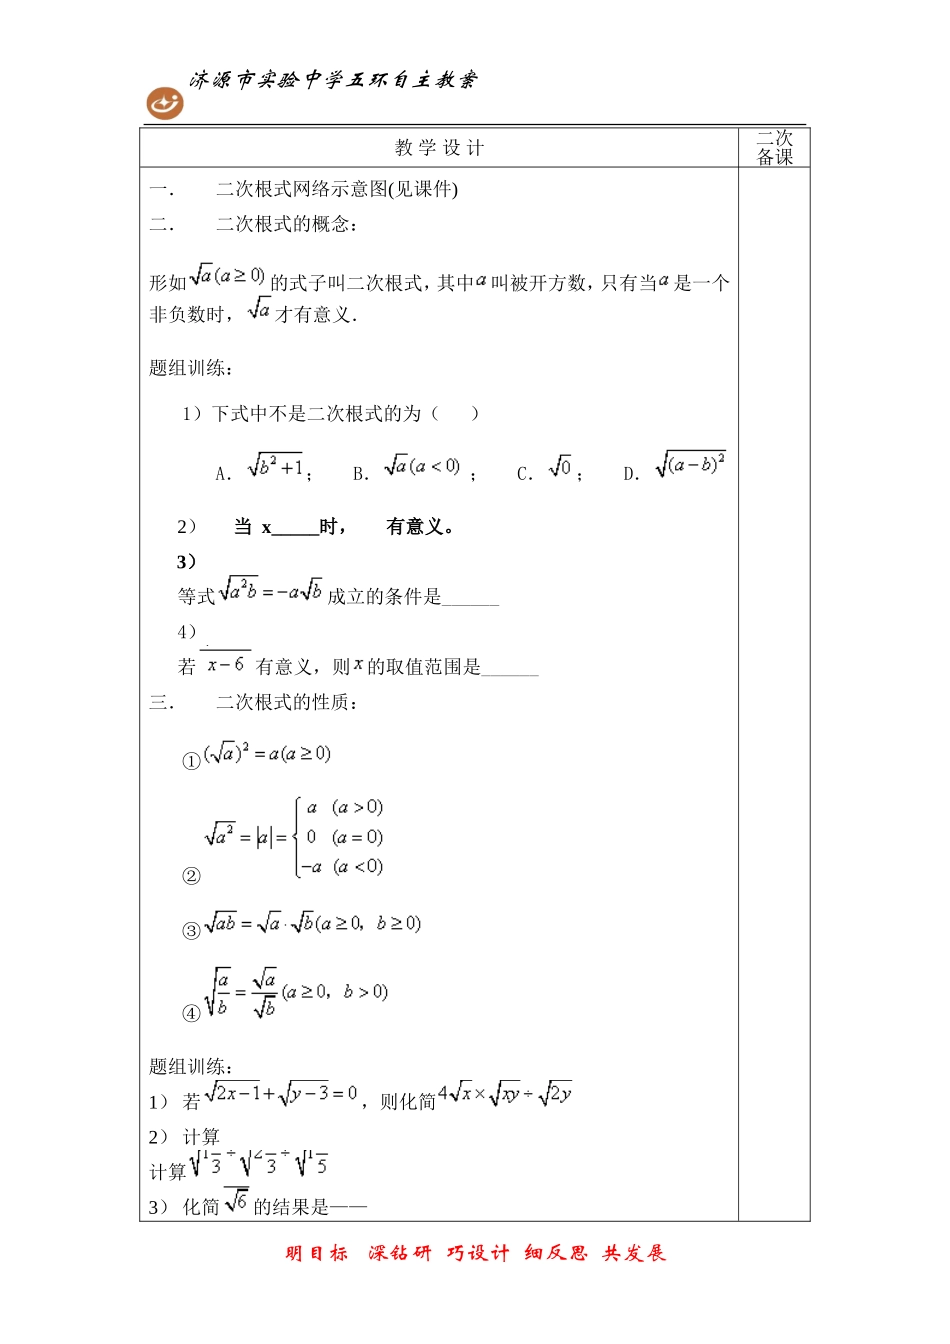 济源市实验中学五环自主教案
教 学 设 计
二次
备课
一． 二次根式网络示意图(见课件)
二． 二次根式的概念：
形如√a(a≥0)的式子叫二次根式，其中a叫被开方数，只有当a是一个
非负数时，√a才有意义．
题组训练：
1）下式中不是二次根式的为（ ）
A．√(b²+1)； B．√a(a<0)； C．√0； D．√((a−b)²)
2） 当 x_____时， 有意义。
3）
等式√(a²b)=−a√b成立的条件是______
4）
若 x−6 有意义，则x的取值范围是______
三． 二次根式的性质：
①(√a)²=a(a≥0)
②√(a²)=|a|={a (a>0) 0 (a=0) −a (a<0)
③√(ab)=√a·√b(a≥0，b≥0)
④√(a/b)=√a/√b(a≥0，b>0)
题组训练：
1） 若√(2x−1)+√(y−3)=0，则化简4√x×√(xy)÷√(2y)
2） 计算
计算
3） 化简 √6 的结果是——
明目标 深钻研 巧设计 细反思 共发展